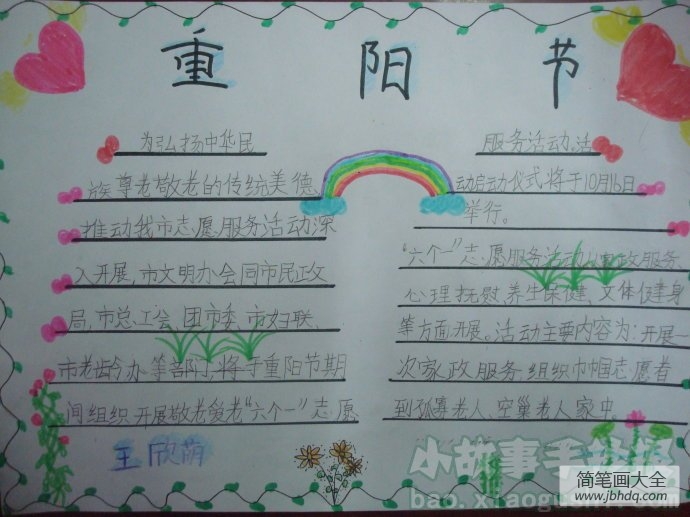 重阳节
为弘扬中华民
族尊老敬老的传统美德
推动我市志愿服务活动深
入开展,市文明办会同市民政
局,市总工会,团市委,市妇联,
市老龄办等部门,将于重阳节期
间组织开展敬老爱老“六个一”志愿
王欣荫
服务活动,活
动启动仪式将于10月16日
举行。
“六个一”志愿服务活动以家政服务
心理抚慰、养生保健、文体健身
等方面开展。活动主要内容为:开展一
次家政服务,组织巾帼志愿者
到孤寡老人、空巢老人家中
小故事手
bao.xiaogus
简笔画大全
www.jbhdq.com